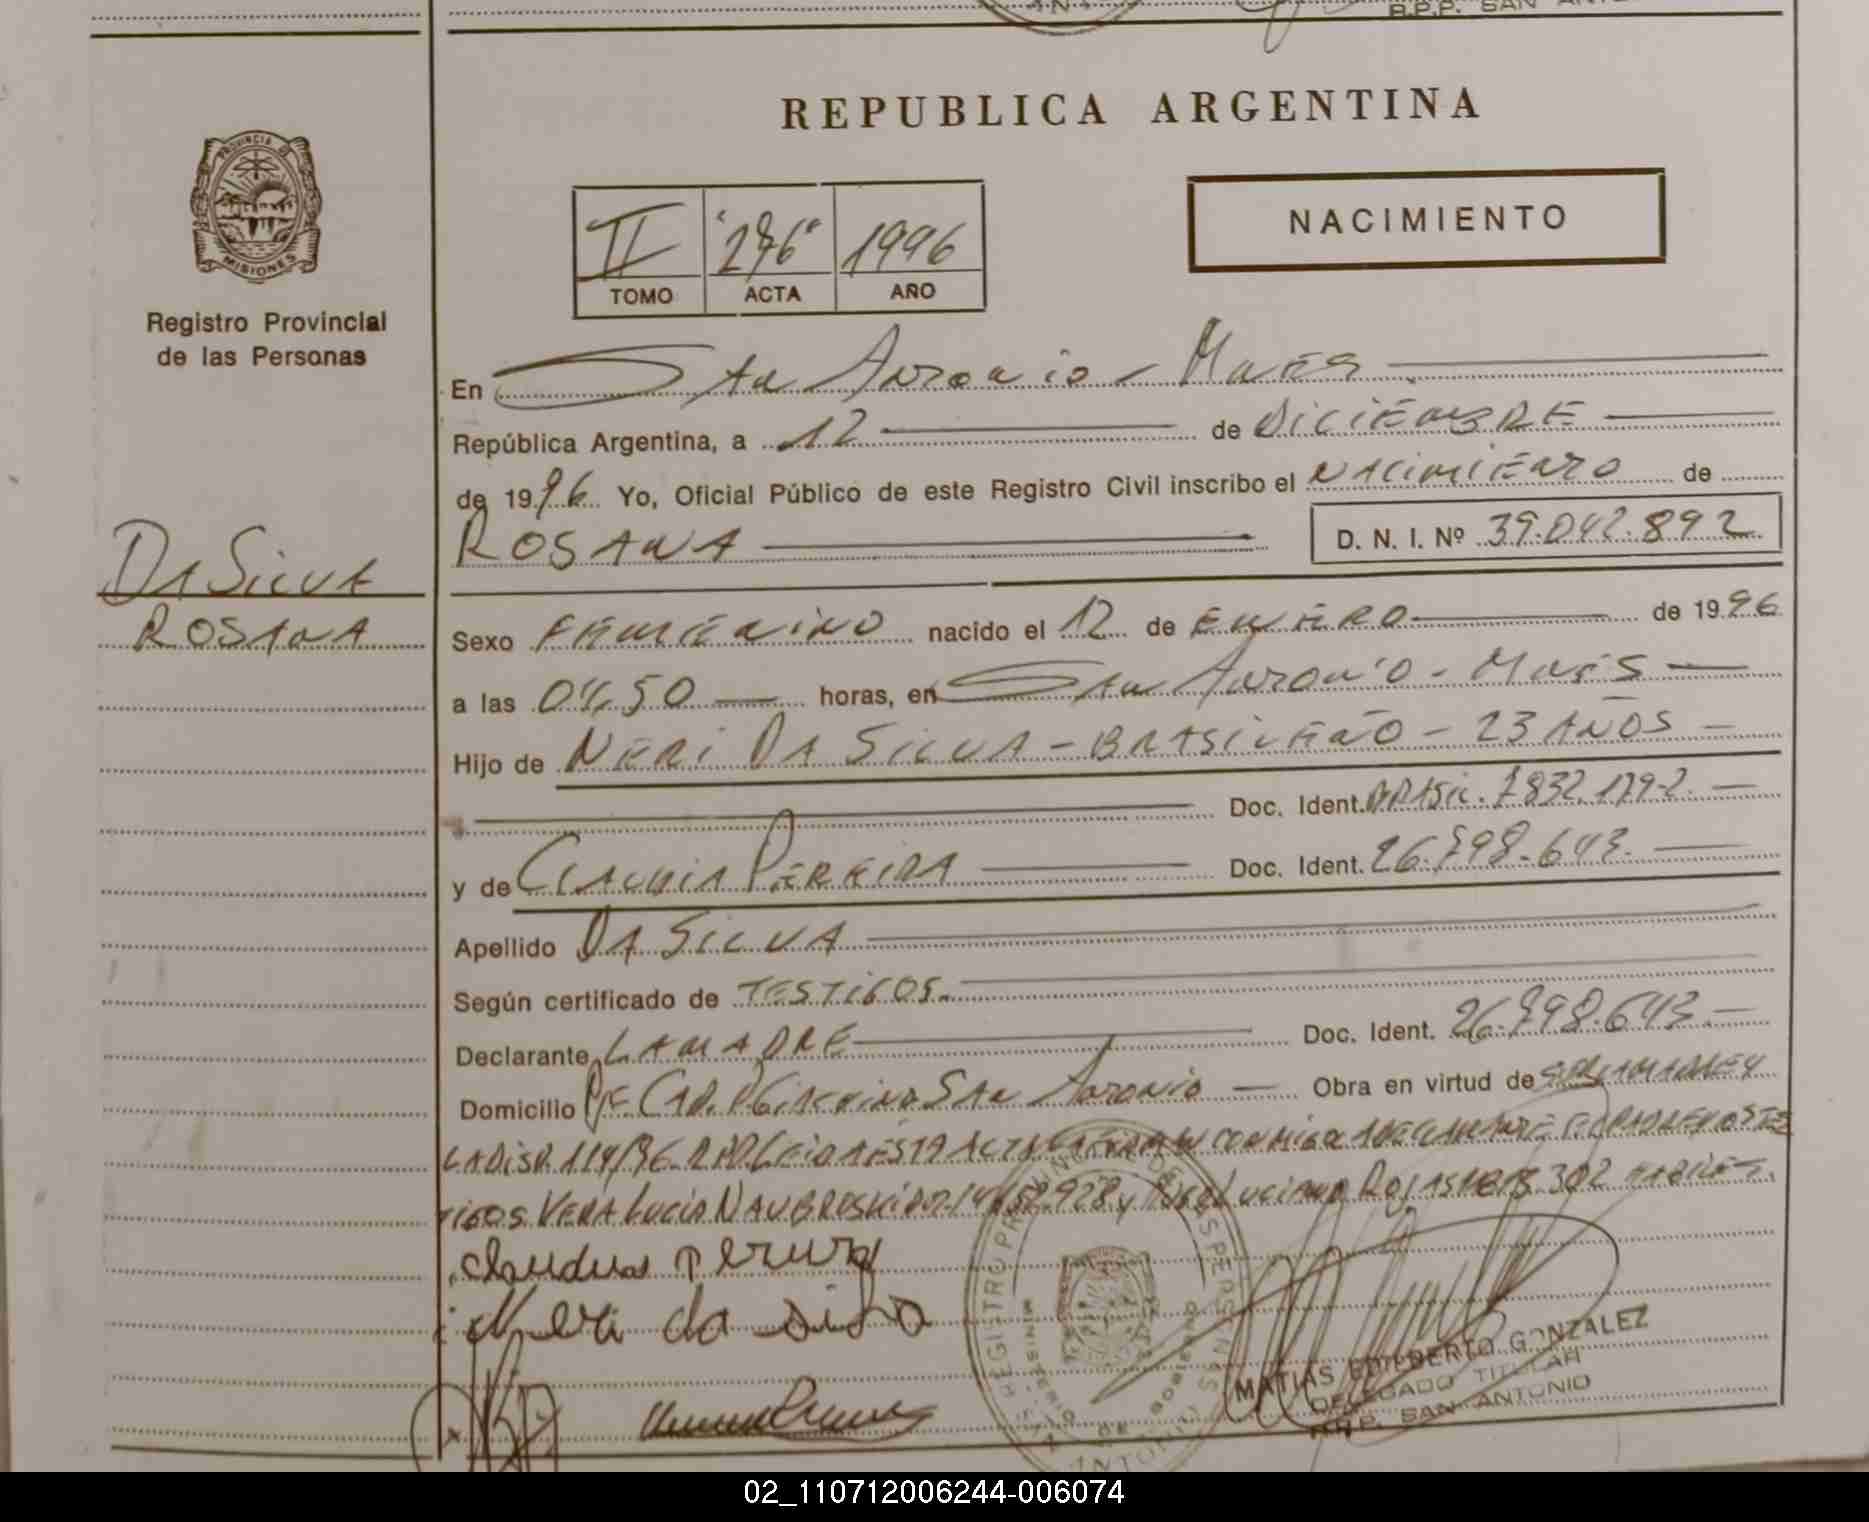 REPUBLICA ARGENTINA
PROVINCIA DE
MISIONES
Registro Provincial
de las Personas
NACIMIENTO
II "276" 1996
TOMO ACTA AÑO
En San Antonio - Mnes
República Argentina, a 12 de DICIEMBRE
de 1996 Yo, Oficial Público de este Registro Civil inscribo el NACIMIENTO de
ROSANA D. N. I. Nº 39.042.892
DA SILVA
ROSANA
Sexo FEMENINO nacido el 12 de ENERO de 1996
a las 04,50 horas, en San Antonio - Mnes
Hijo de NERI DA SILVA - BRASILEÑO - 23 AÑOS
Doc. Ident. BRASIL. 7832.179-2.
y de CLAUDIA PEREIRA Doc. Ident. 26.798.643.
Apellido DA SILVA
Según certificado de TESTIGOS.
Declarante LA MADRE Doc. Ident. 26.798.643.
Domicilio PJE. CAP. San Antonio Obra en virtud de
LA DISP. 114/96. R.P.P. LEIDA ESTA ACTA LA FIRMAN CONMIGO LA DECLARANTE EL PADRE Y OS TES
TIGOS VERA LUCIA y LUCIANO ROJAS 302
Claudia Pereira
Neri da silva
REGISTRO PROVINCIAL DE LAS PERSONAS
MINISTERIO DE GOBIERNO
MATIAS EDILBERTO GONZALEZ
DELEGADO TITULAR
R.P.P. SAN ANTONIO
02_110712006244-006074